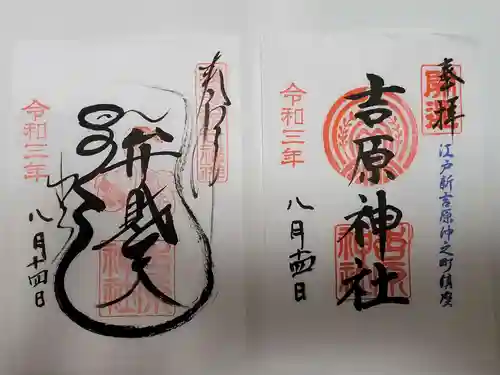 奉拝
開運
江戸新吉原仲之町鎮座
吉原神社
令和三年
八月十四日
奉拝
弁財天
令和三年
八月十四日